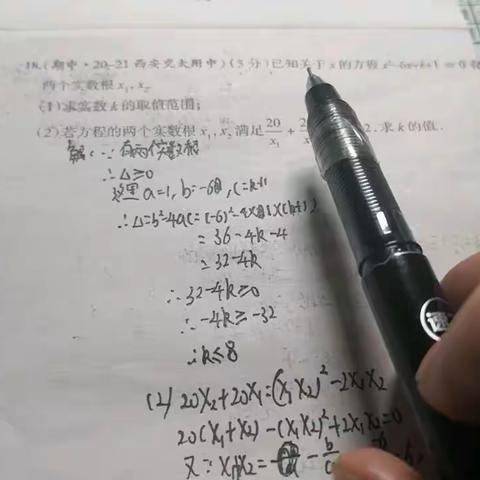 18.(期中·20-21西安交大附中)(5分)已知关于x的方程x²-6x+k+1=0有
两个实数根x₁,x₂
(1)求实数k的取值范围;
(2)若方程的两个实数根x₁,x₂满足20/x₁+2 2.求k的值.
解: ∵有两个实数根
∴△≥0
这里a=1,b=-6,c=k+1
∴△=b²-4ac=(-6)²-4×1×(k+1)
=36-4k-4
=32-4k
∴32-4k≥0
∴-4k≥-32
∴k≤8
(2) 20x₂+20x₁=(x₁x₂)²-2x₁x₂
20(x₁+x₂)-(x₁x₂)²+2x₁x₂=0
又∵x₁x₂= -b/